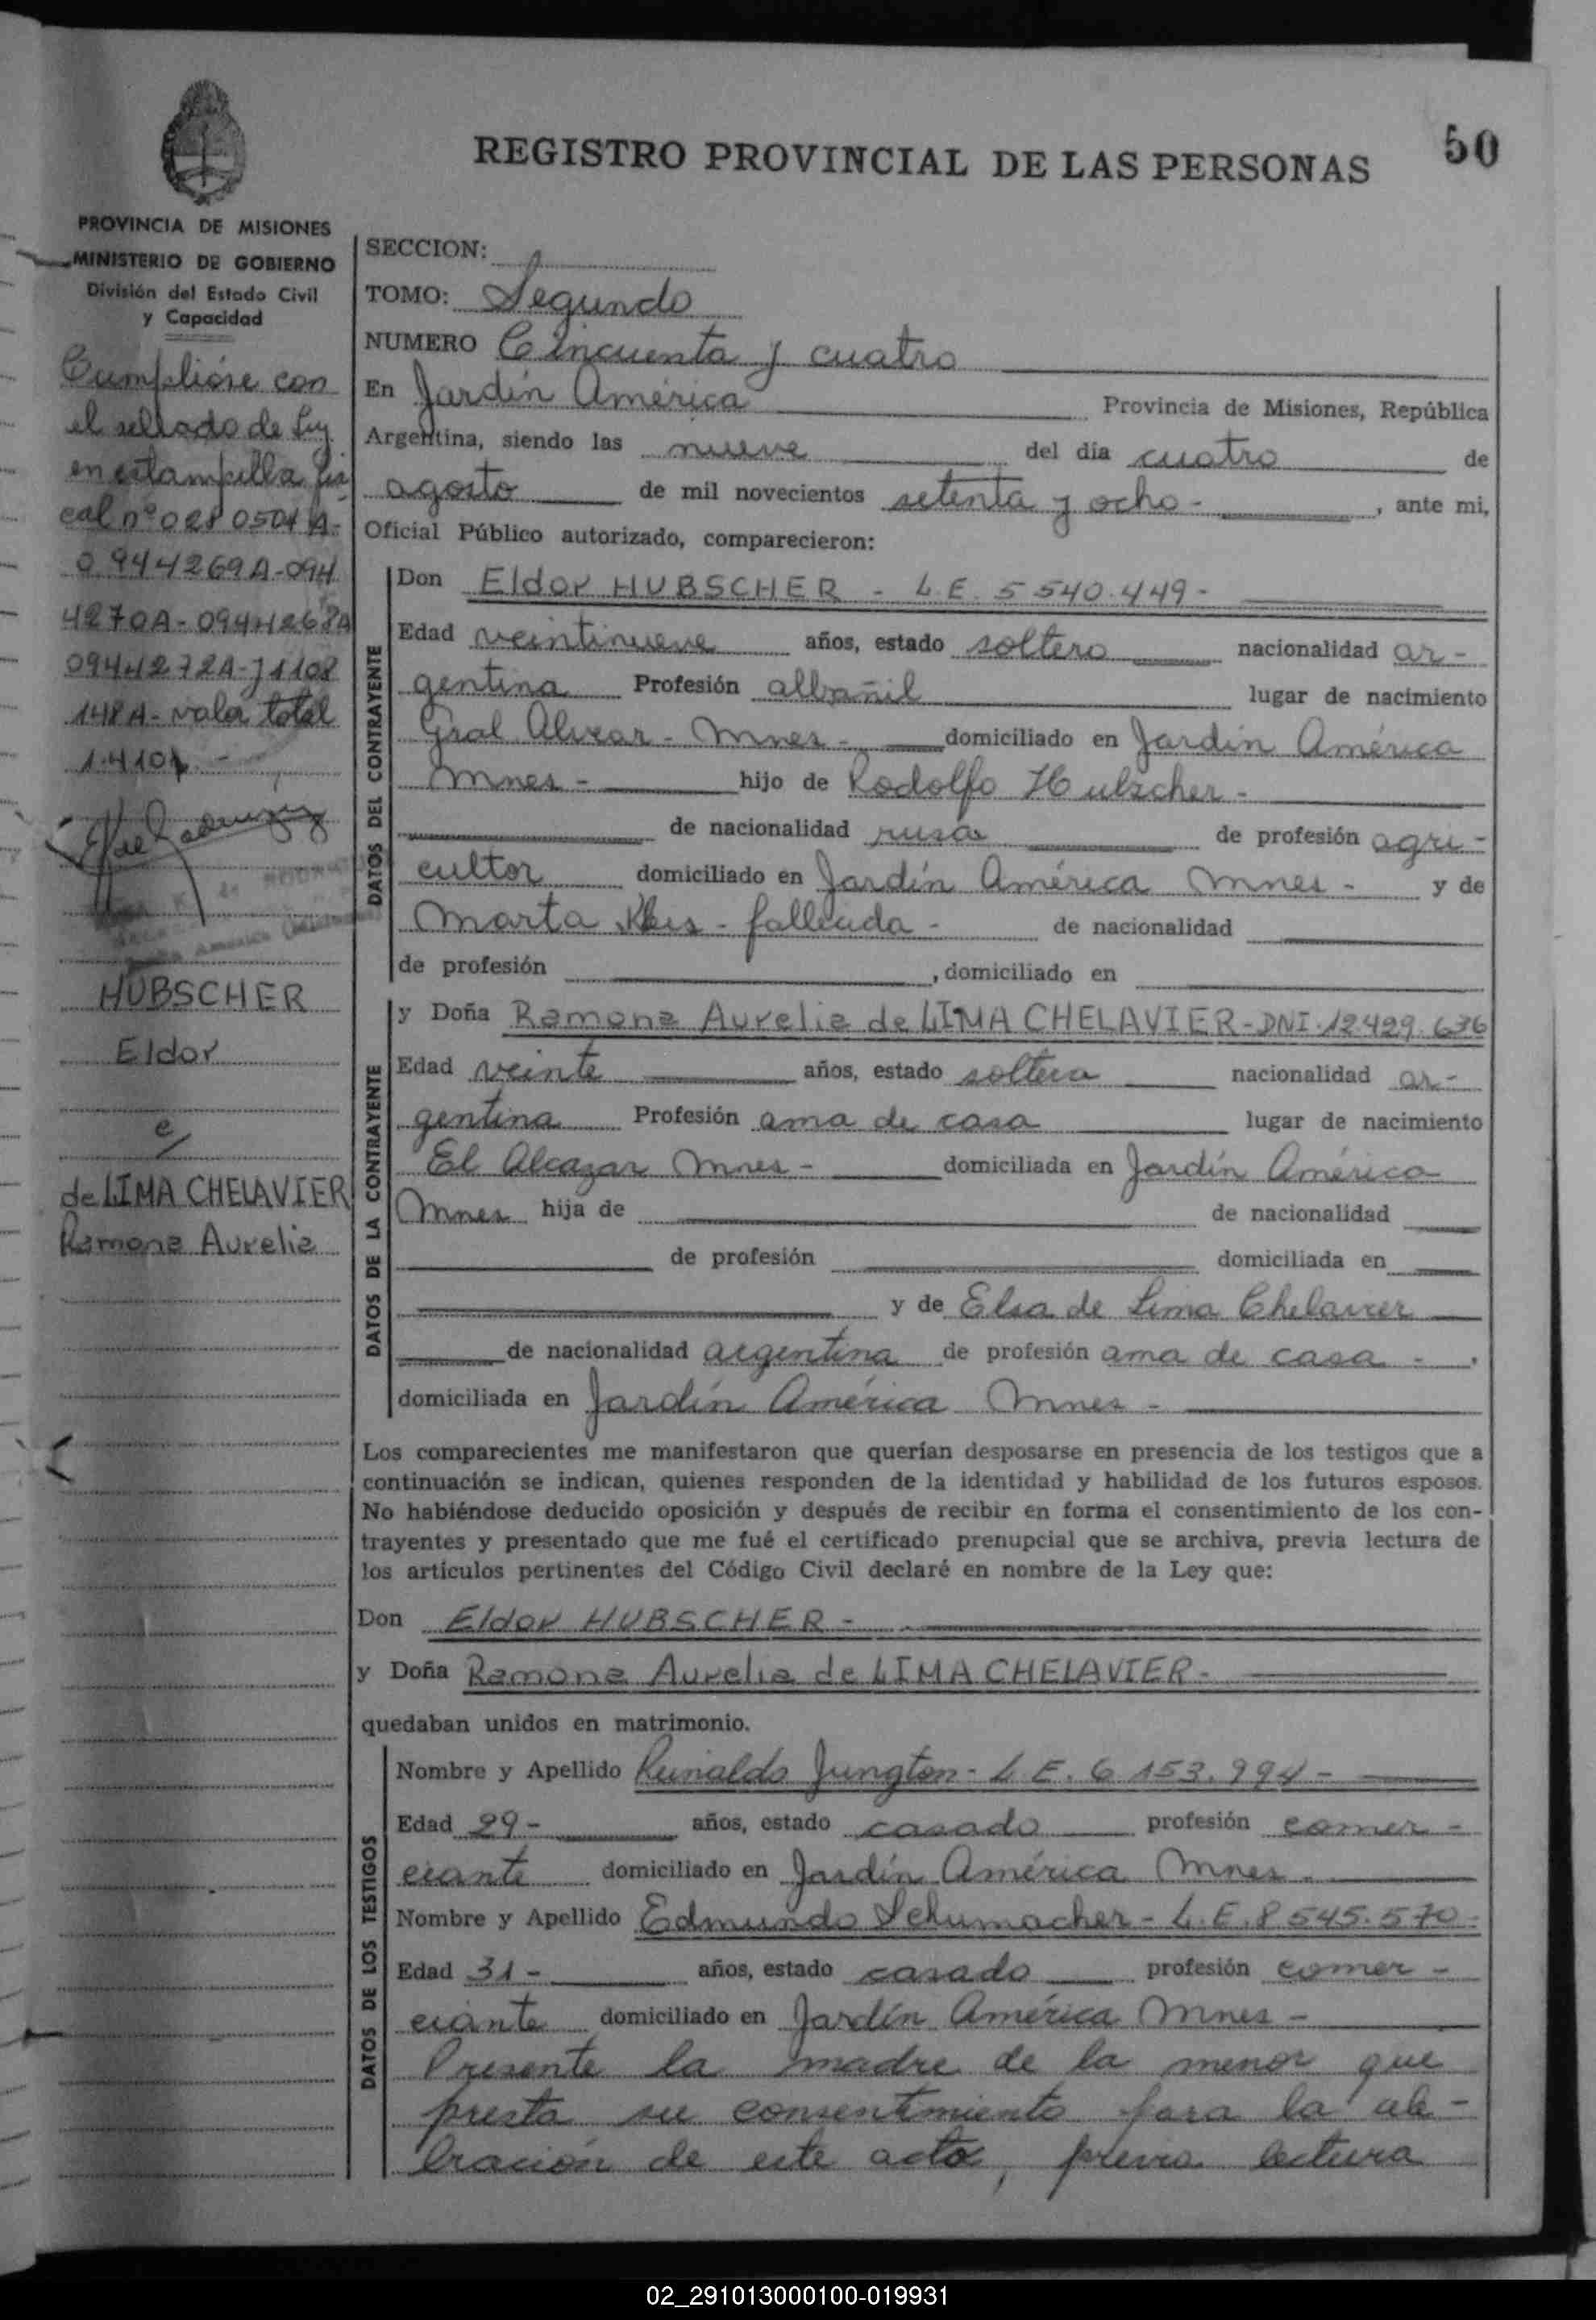 50
REGISTRO PROVINCIAL DE LAS PERSONAS
PROVINCIA DE MISIONES
MINISTERIO DE GOBIERNO
División del Estado Civil
y Capacidad
Cumplióse con
el sellado de Ley
en estampilla fis
cal nº 028 0501 A-
0 944269A-094
4270A-0944268A
0944272A-y 1108
148A-valor total
1.410
HUBSCHER
Eldor
c/
de LIMA CHELAVIER
Ramona Aurelia
SECCION:
TOMO: Segundo
NUMERO Cincuenta y cuatro
En Jardín América Provincia de Misiones, República
Argentina, siendo las nueve del día cuatro de
agosto de mil novecientos setenta y ocho - , ante mi,
Oficial Público autorizado, comparecieron:
DATOS DEL CONTRAYENTE
Don Eldor HUBSCHER - L.E. 5 540.449-
Edad veintinueve años, estado soltero nacionalidad ar-
gentina Profesión albañil lugar de nacimiento
Gral Alvear - Mnes - domiciliado en Jardín América
Mnes - hijo de Rodolfo Hubscher -
de nacionalidad rusa de profesión agri-
cultor domiciliado en Jardín América Mnes - y de
Marta - fallecida - de nacionalidad
de profesión , domiciliado en
DATOS DE LA CONTRAYENTE
y Doña Ramona Aurelia de LIMA CHELAVIER - DNI. 12.429.636
Edad veinte años, estado soltera nacionalidad ar-
gentina Profesión ama de casa lugar de nacimiento
El Alcazar Mnes - domiciliada en Jardín América
Mnes hija de de nacionalidad
de profesión domiciliada en
y de Elsa de Lima Chelavier
de nacionalidad argentina de profesión ama de casa - .
domiciliada en Jardín América Mnes -
Los comparecientes me manifestaron que querían desposarse en presencia de los testigos que a
continuación se indican, quienes responden de la identidad y habilidad de los futuros esposos.
No habiéndose deducido oposición y después de recibir en forma el consentimiento de los con-
trayentes y presentado que me fué el certificado prenupcial que se archiva, previa lectura de
los artículos pertinentes del Código Civil declaré en nombre de la Ley que:
Don Eldor HUBSCHER -
y Doña Ramona Aurelia de LIMA CHELAVIER -
quedaban unidos en matrimonio.
DATOS DE LOS TESTIGOS
Nombre y Apellido Reinaldo Jungton - L E. 6 153.994 -
Edad 29 - años, estado casado profesión comer-
ciante domiciliado en Jardín América Mnes -
Nombre y Apellido Edmundo Schumacher - L.E. 8 545.570 -
Edad 31 - años, estado casado profesión comer -
ciante domiciliado en Jardín América Mnes -
Presente la madre de la menor que
presta su consentimiento para la cele-
bración de este acto, previa lectura
02_291013000100-019931